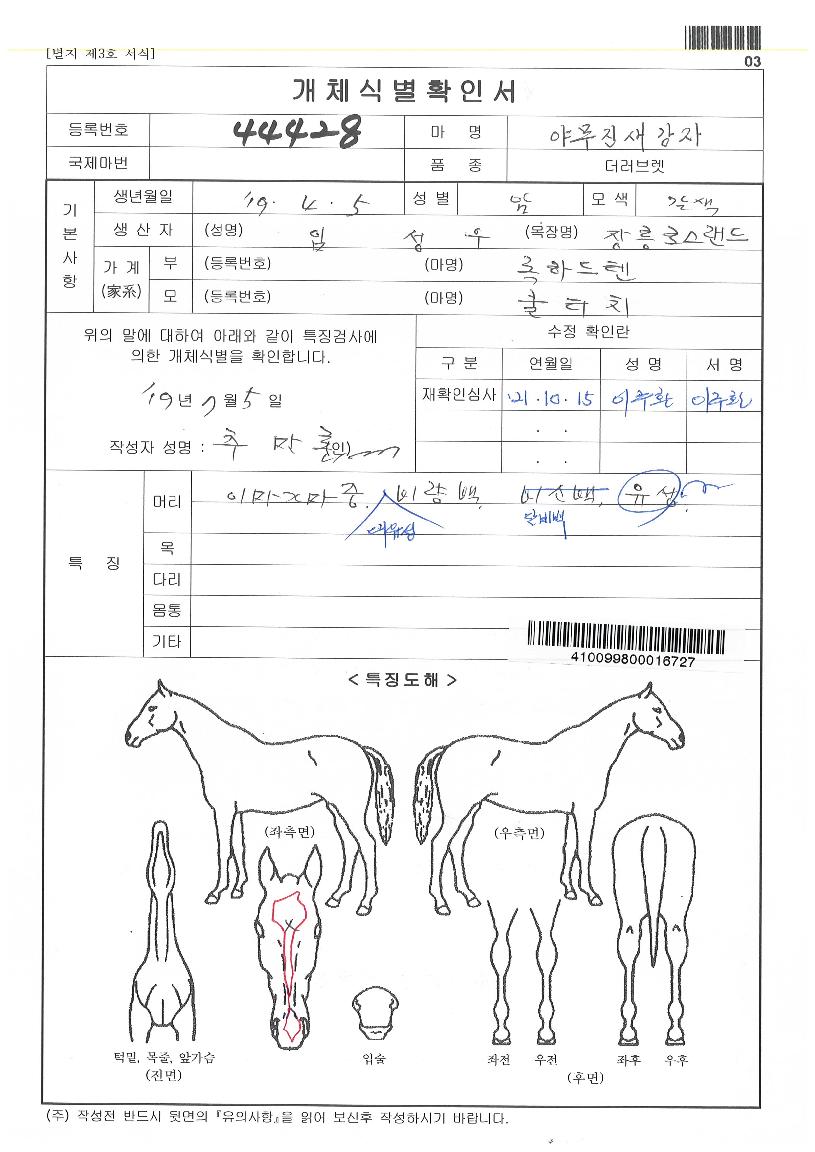 [별지 제3호 서식]
03
개체식별확인서
등록번호 44428 마 명 야무진새강자
국제마번 품 종 더러브렛
기본사항
생년월일 '19. 4. 5 성 별 암 모 색 갈색
생 산 자 (성명) 임 성 우 (목장명) 장흥호스랜드
가 계 (家系) 부 (등록번호) (마명) 록하드텐
모 (등록번호) (마명) 출터치
위의 말에 대하여 아래와 같이 특징검사에
의한 개체식별을 확인합니다.
'19년 7월 5일
작성자 성명 : 추 만 (인)
수정 확인란
구 분 연월일 성 명 서 명
재확인심사 '21.10.15 이주환 이주환
. .
. .
특 징
머리 이마가마중. 비량백. 비선백, 유성.
대유성 말비백
목
다리
몸통
기타
410099800016727
< 특징도해 >
(좌측면) (우측면)
턱밑, 목줄, 앞가슴
(진면)
입술
좌전 우전 좌후 우후
(후면)
(주) 작성전 반드시 뒷면의 『유의사항』을 읽어 보신후 작성하시기 바랍니다.